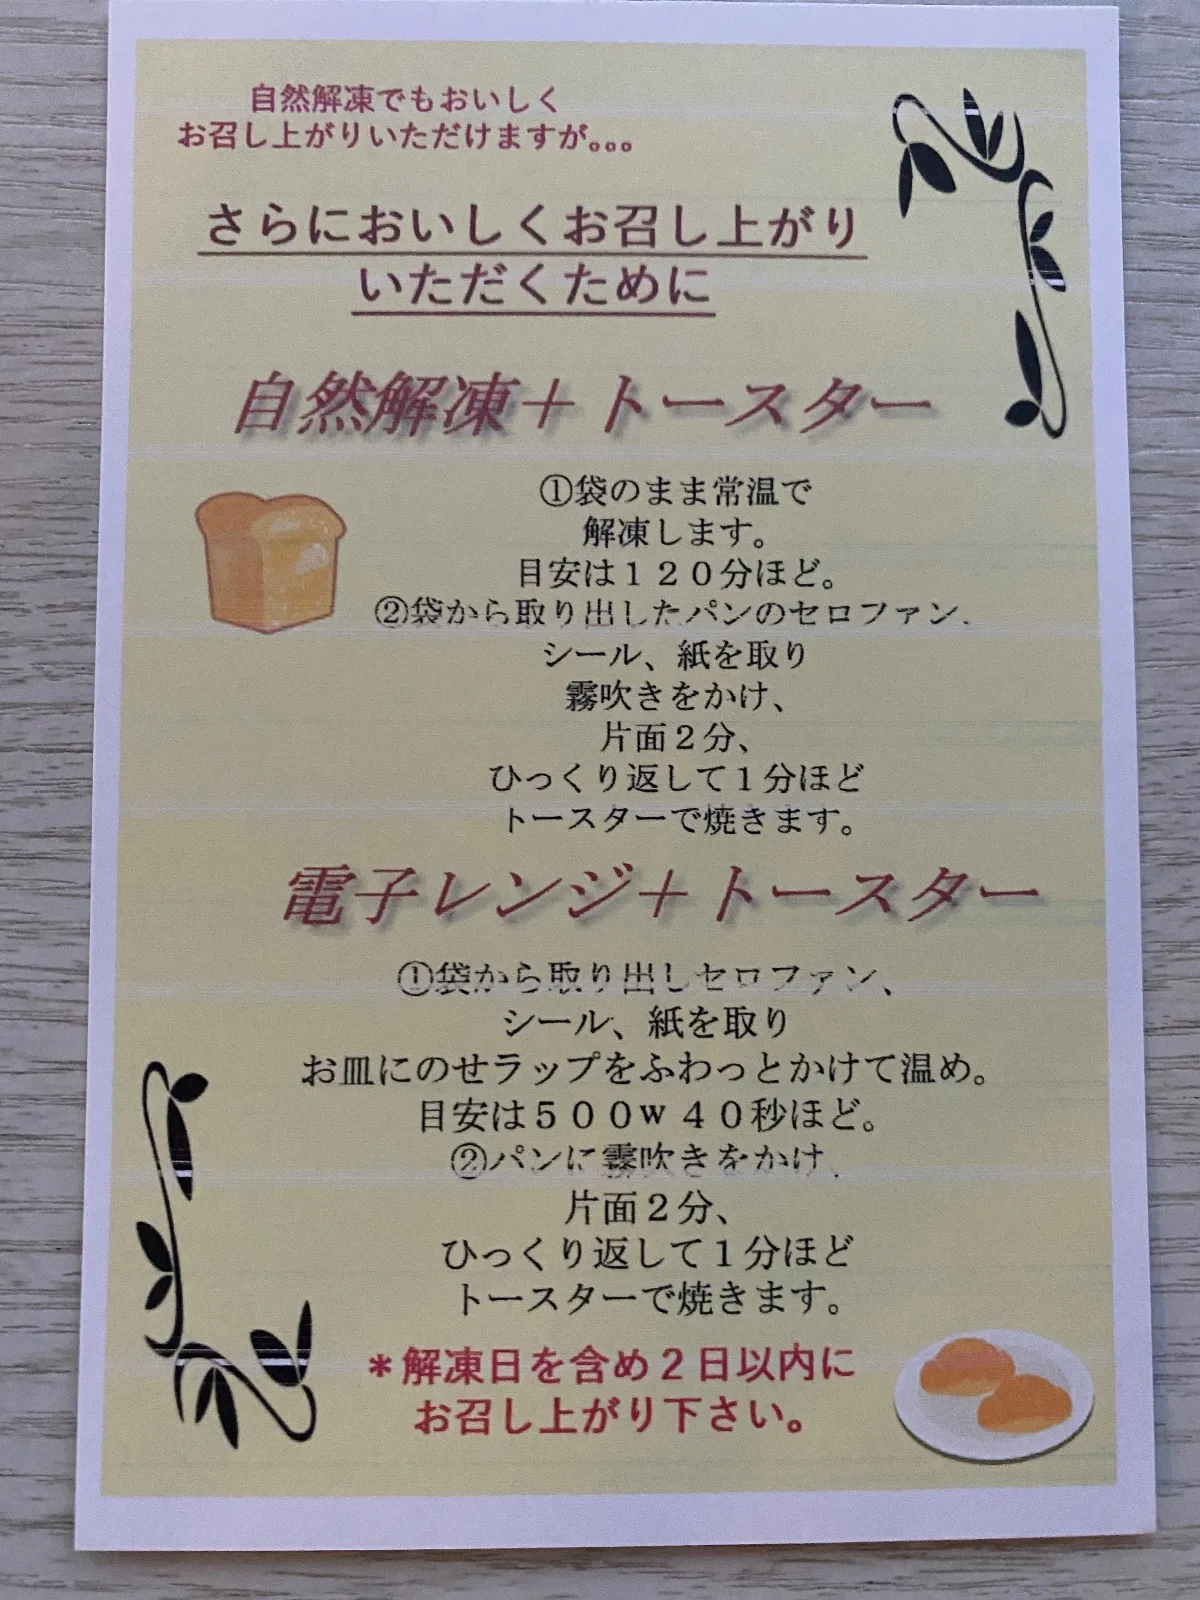 自然解凍でもおいしく
お召し上がりいただけますが。。。
さらにおいしくお召し上がり
いただくために
自然解凍＋トースター
①袋のまま常温で
解凍します。
目安は１２０分ほど。
②袋から取り出したパンのセロファン、
シール、紙を取り
霧吹きをかけ、
片面２分、
ひっくり返して１分ほど
トースターで焼きます。
電子レンジ＋トースター
①袋から取り出しセロファン、
シール、紙を取り
お皿にのせラップをふわっとかけて温め。
目安は５００w ４０秒ほど。
②パンに霧吹きをかけ、
片面２分、
ひっくり返して１分ほど
トースターで焼きます。
＊解凍日を含め２日以内に
お召し上がり下さい。